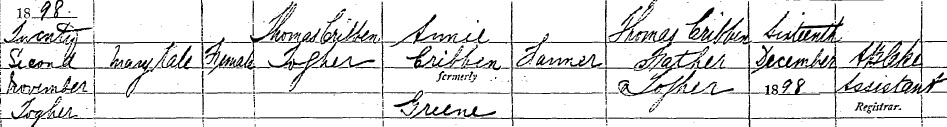 1898.
Twenty Thomas Cribben Annie Thomas Cribben Sixteenth
Second Mary Kate Female Togher Cribben Farmer Father December Assistant
November formerly Togher 1898 Registrar.
Togher Greene